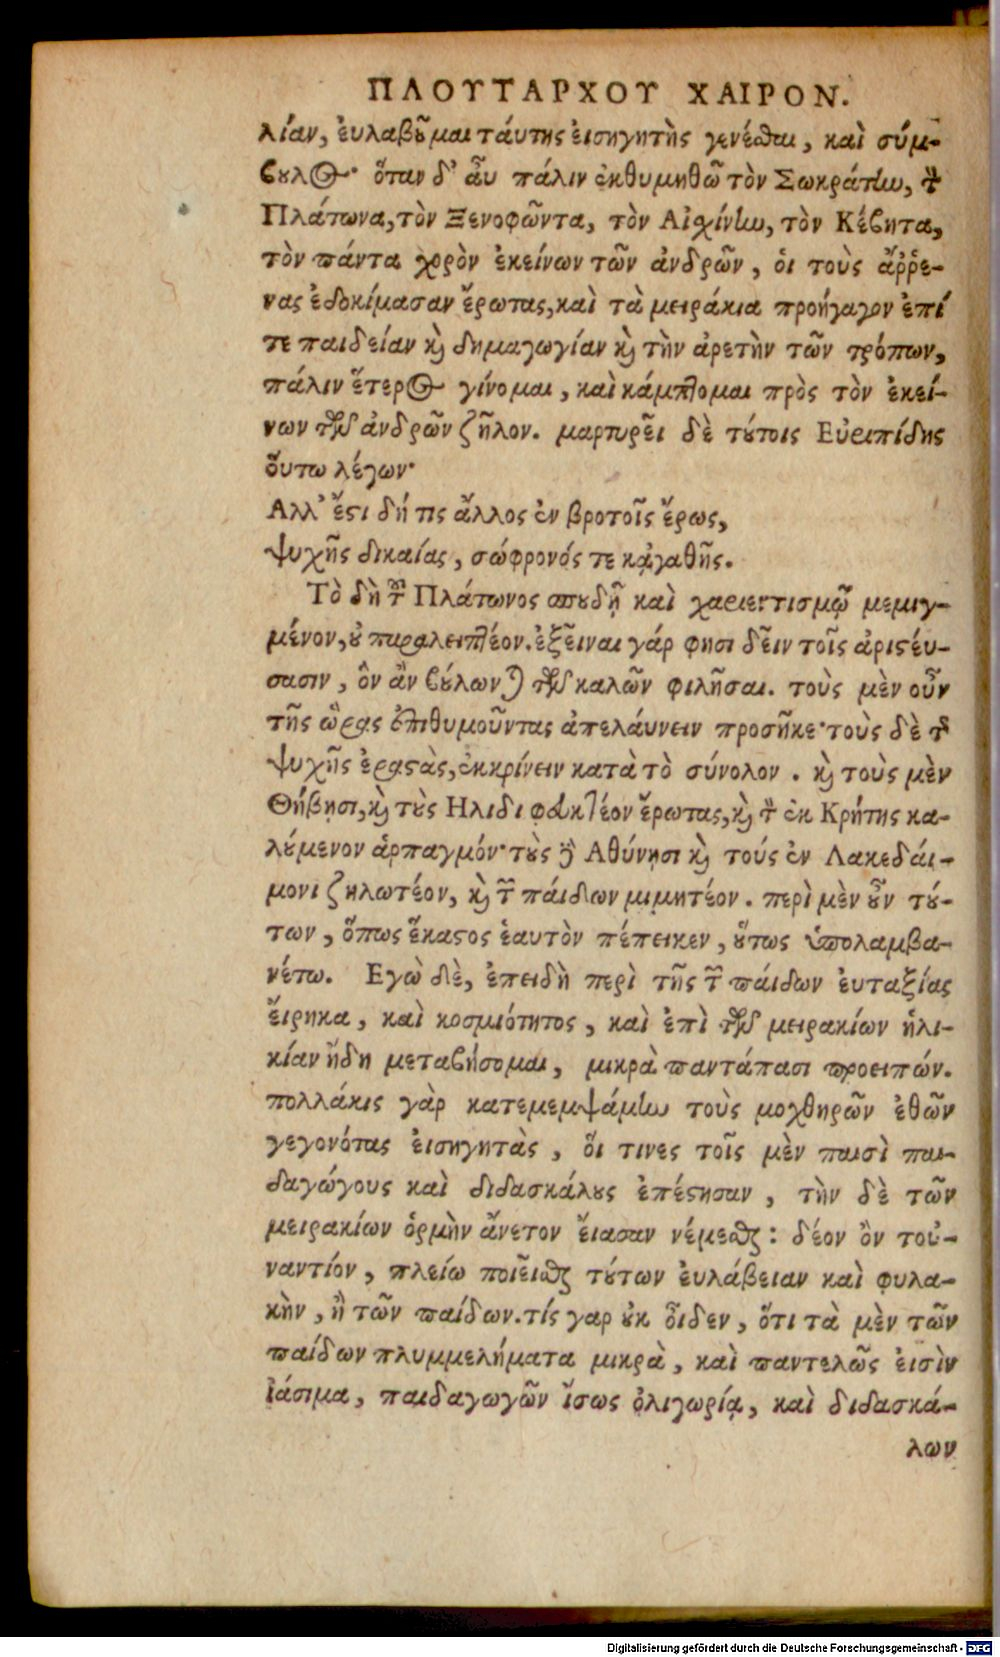 ΠΛΟΥΤΑΡΧΟΥ ΧΑΙΡΟΝ.
λίαν, ἐυλαβȣ͂μαι τάυτης ἐισηγητὴς γενέσθαι, καὶ σύμ-
βȣλος· ὅταν δ' ἂυ πάλιν ἐκθυμηθῶ τὸν Σωκράτην, τὸν
Πλάτωνα, τὸν Ξενοφῶντα, τὸν Αἰχίνην, τὸν Κέβητα,
τὸν πάντα χορὸν ἐκείνων τῶν ἀνδρῶν, ὁι τοὺς ἄῤῥε-
νας ἐδοκίμασαν ἔρωτας, καὶ τὰ μειράκια προήγαγον ἐπί
τε παιδείαν καὶ δημαγωγίαν καὶ τὴν ἀρετὴν τῶν τρόπων,
πάλιν ἕτερος γίνομαι, καὶ κάμπτομαι πρὸς τὸν ἐκεί-
νων τῶν ἀνδρῶν ζῆλον. μαρτυρεῖ δὲ τȣ́τοις Εὐριπίδης
ὅυτω λέγων·
Αλλ' ἔστι δή τις ἄλλος ἐν βροτοῖς ἔρως,
ψυχῆς δικαίας, σώφρονός τε κᾀγαθῆς.
Τὸ δὴ τοῦ Πλάτωνος σπȣδῇ καὶ χαριεντισμῷ μεμιγ-
μένον, ȣ̓ παραλειπτέον. ἐξεῖναι γάρ φησι δεῖν τοῖς ἀριστέυ-
σασιν, ὃν ἂν βȣ́λωνται τῶν καλῶν φιλῆσαι. τοὺς μὲν οὖν
τῆς ὥρας ἐπιθυμοῦντας ἀπελάυνειν προσῆκε· τοὺς δὲ τῆς
ψυχῆς ἐραστὰς, ἐκκρίνειν κατὰ τὸ σύνολον. καὶ τοὺς μὲν
Θήβησι, καὶ τȣ̀ς Ηλιδι φευκτέον ἔρωτας, καὶ τὸν ἐκ Κρήτης κα-
λȣ́μενον ἁρπαγμόν· τȣ̀ς δὲ Αθύνησι καὶ τούς ἐν Λακεδάι-
μονι ζηλωτέον, καὶ τῶν πάιδων μιμητέον. περὶ μὲν ȣ̓͂ν τȣ́-
των, ὅπως ἕκαστος ἑαυτὸν πέπεικεν, ȣ̔́τως ὑπολαμβα-
νέτω. Εγὼ δὲ, ἐπειδὴ περὶ τῆς τῶν πάιδων ἐυταξίας
ἔιρηκα, καὶ κοσμιότητος, καὶ ἐπὶ τῶν μειρακίων ἡλι-
κίαν ἤδη μεταβήσομαι, μικρὰ παντάπασι προειπών.
πολλάκις γὰρ κατεμεμψάμην τοὺς μοχθηρῶν ἐθῶν
γεγονότας ἐισηγητὰς, ὅι τινες τοῖς μὲν παισὶ παι-
δαγώγους καὶ διδασκάλȣς ἐπέστησαν, τὴν δὲ τῶν
μειρακίων ὁρμὴν ἄνετον ἔιασαν νέμεσθαι: δέον ὂν τοὐ-
ναντίον, πλείω ποιεῖσθαι τȣ́των ἐυλάβειαν καὶ φυλα-
κὴν, ἢ τῶν παίδων. τίς γαρ ȣκ ὂιδεν, ὅτι τὰ μὲν τῶν
παίδων πλυμμελήματα μικρὰ, καὶ παντελῶς ἐισὶν
ἰάσιμα, παιδαγωγῶν ἴσως ὀλιγωρίᾳ, καὶ διδασκά-
λων
Digitalisierung gefördert durch die Deutsche Forschungsgemeinschaft - DFG